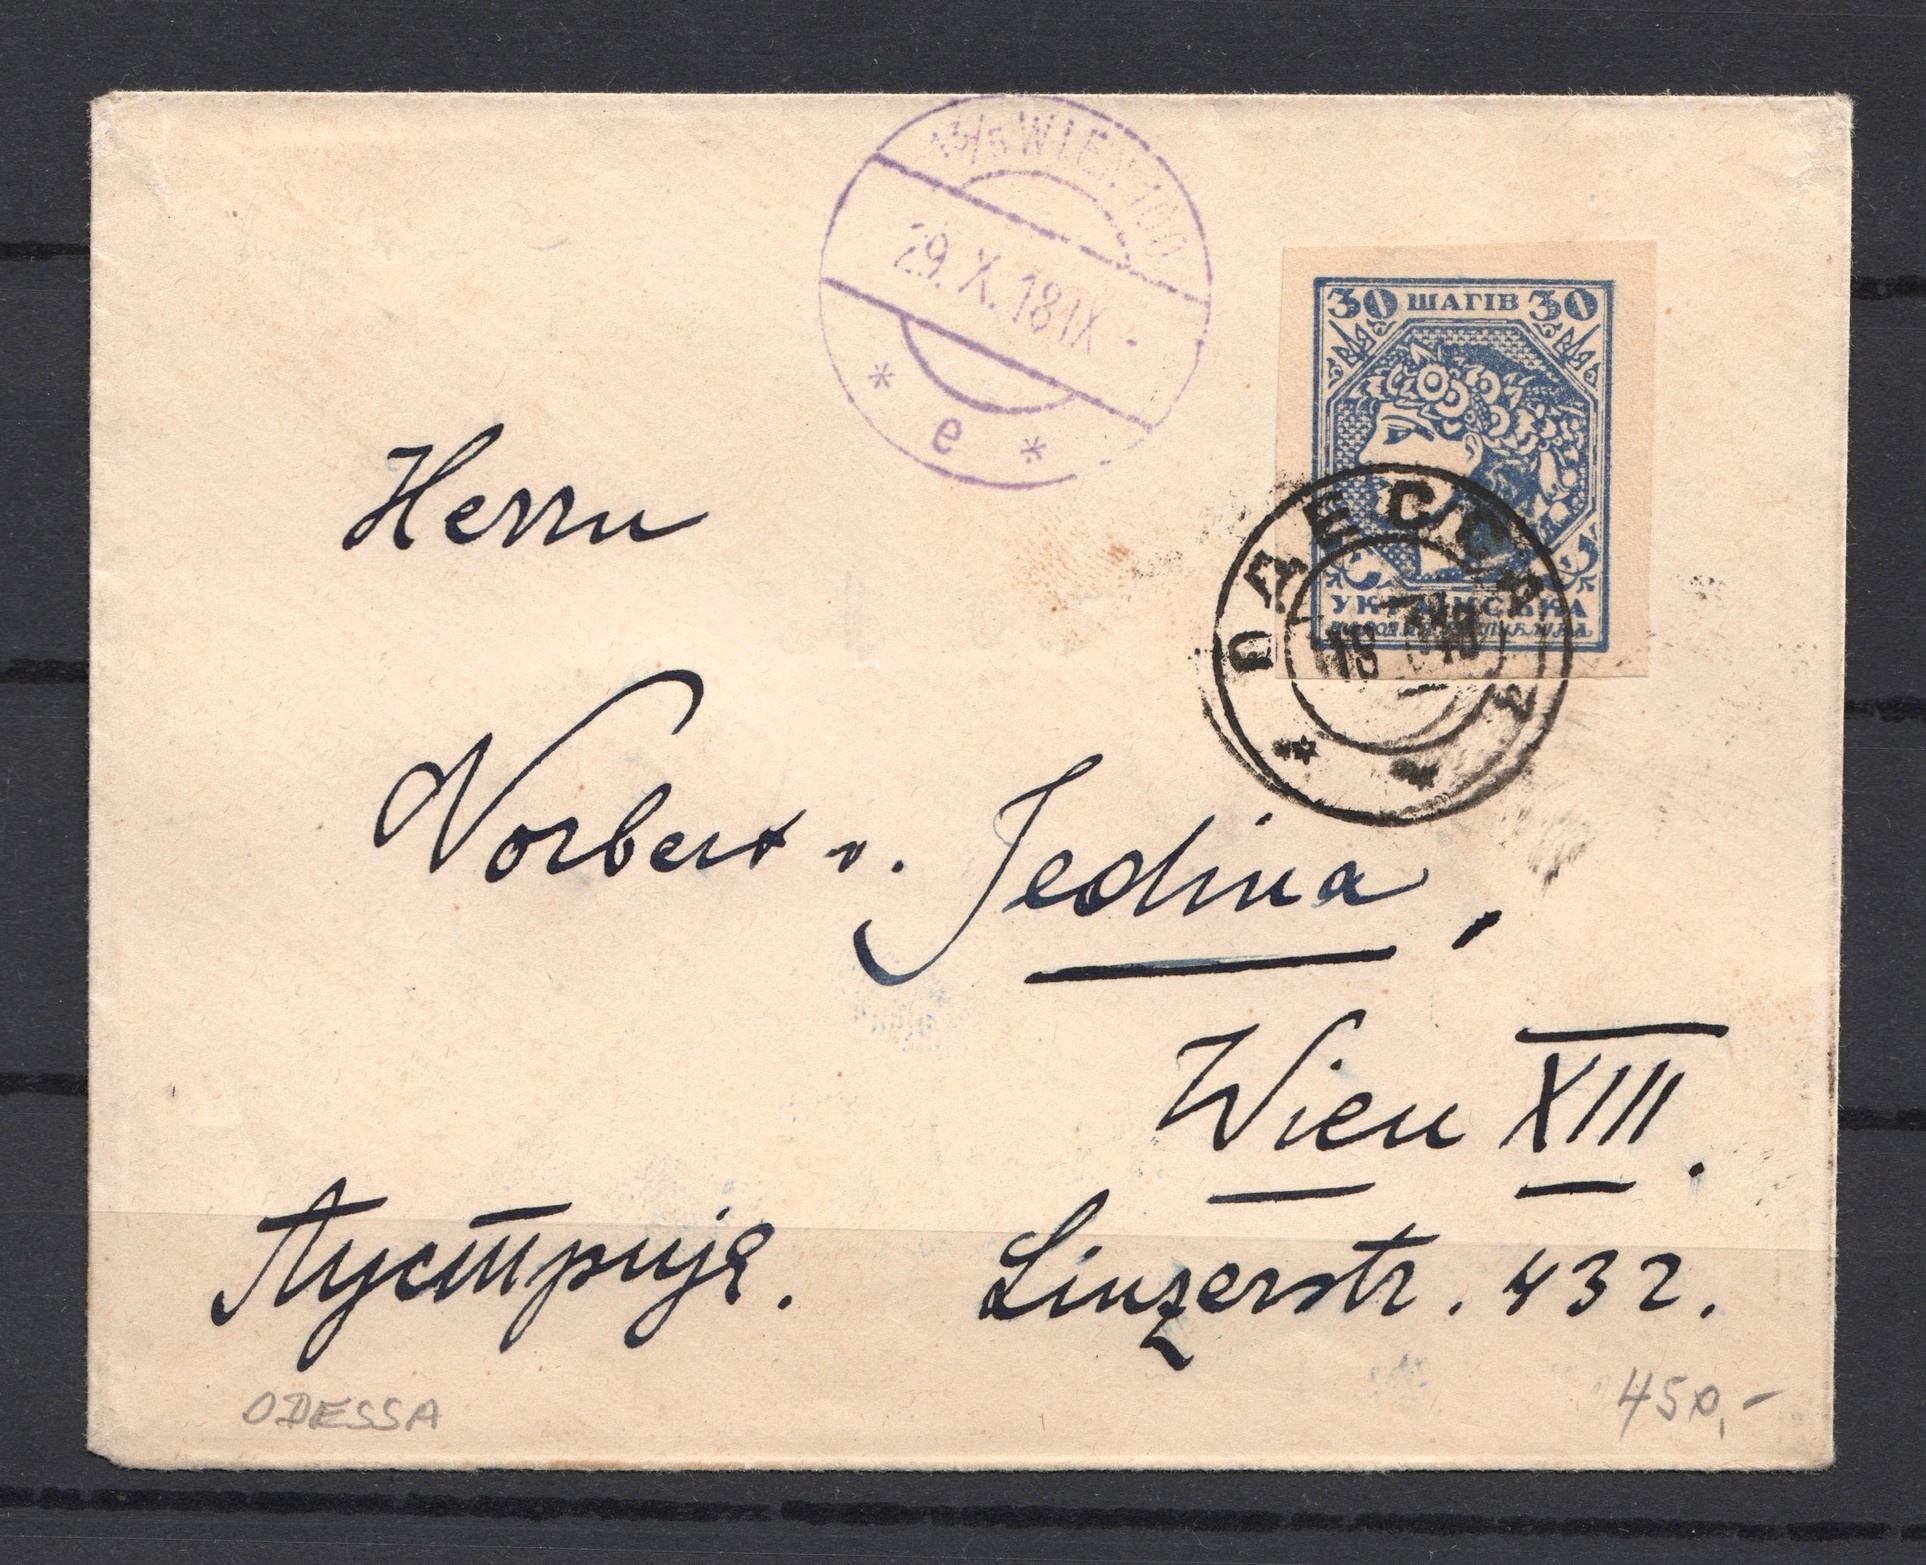 13/5 WIEN 100
29. X. 18 IX -
* e *
30 ШАГІВ 30
УКРАЇНСЬКА
НАРОДНЯ РЕСПУБЛІКА
ОДЕССА
18 10 18
Herrn
Norbert v. Jedina,
Wien XIII.
Аустрија. Linzerstr. 432.
ODESSA
450,-